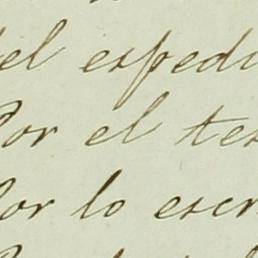 el expedi
Por el tes
Por lo escri